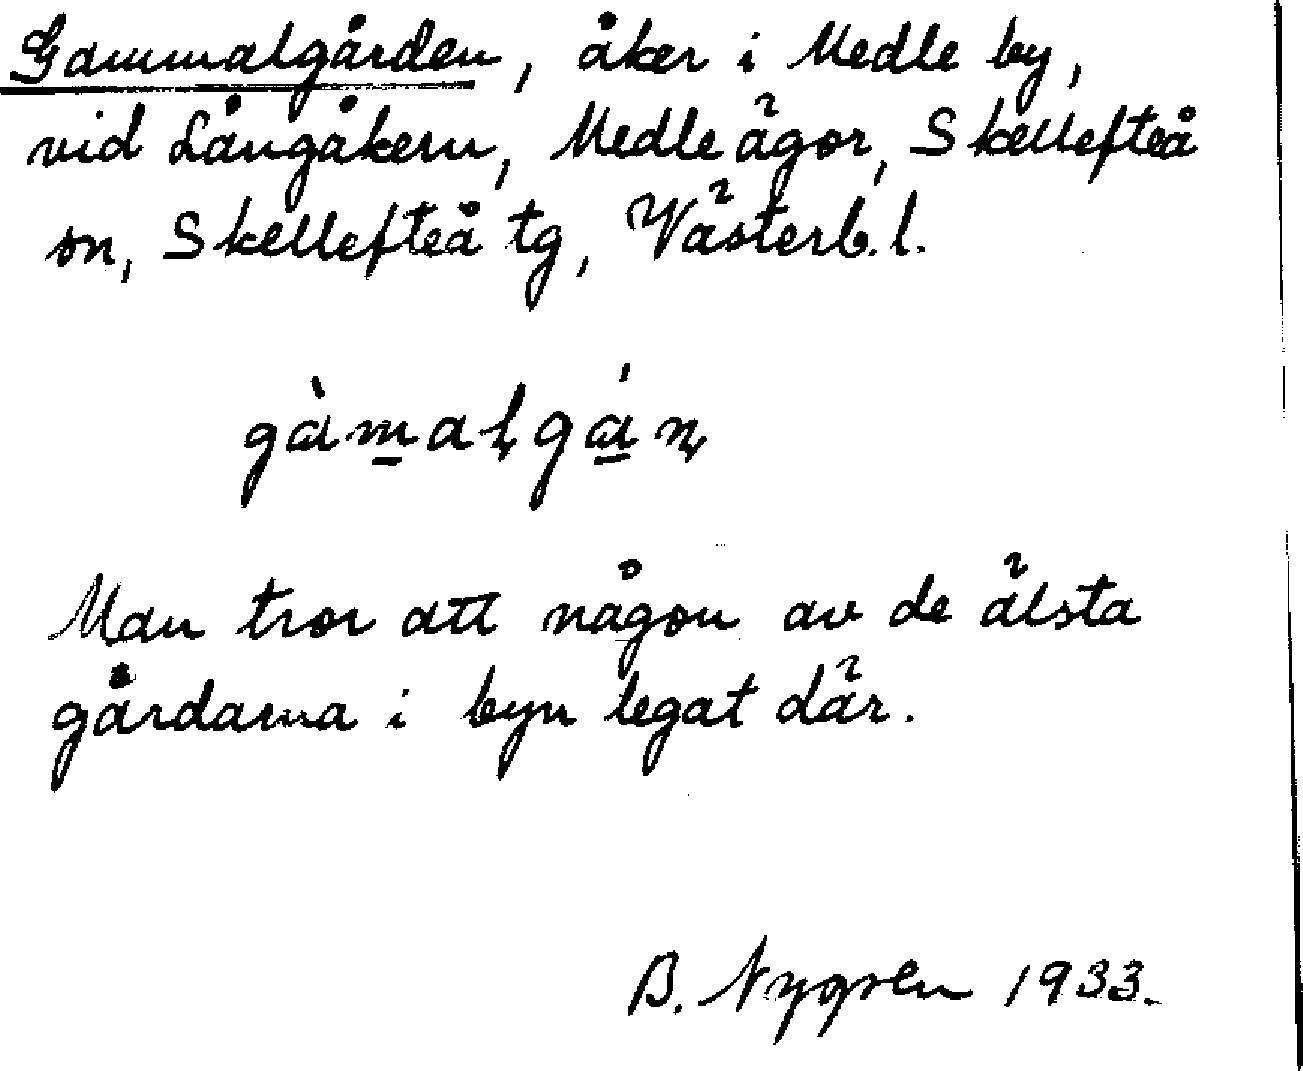 Gammalgården, åker i Medle by,
vid Långåkern, Medle ägor, Skellefteå
sn, Skellefteå tg, Västerb. l.
gàmalgán
Man tror att någon av de älsta
gårdarna i byn legat där.
B. Nygren 1933.